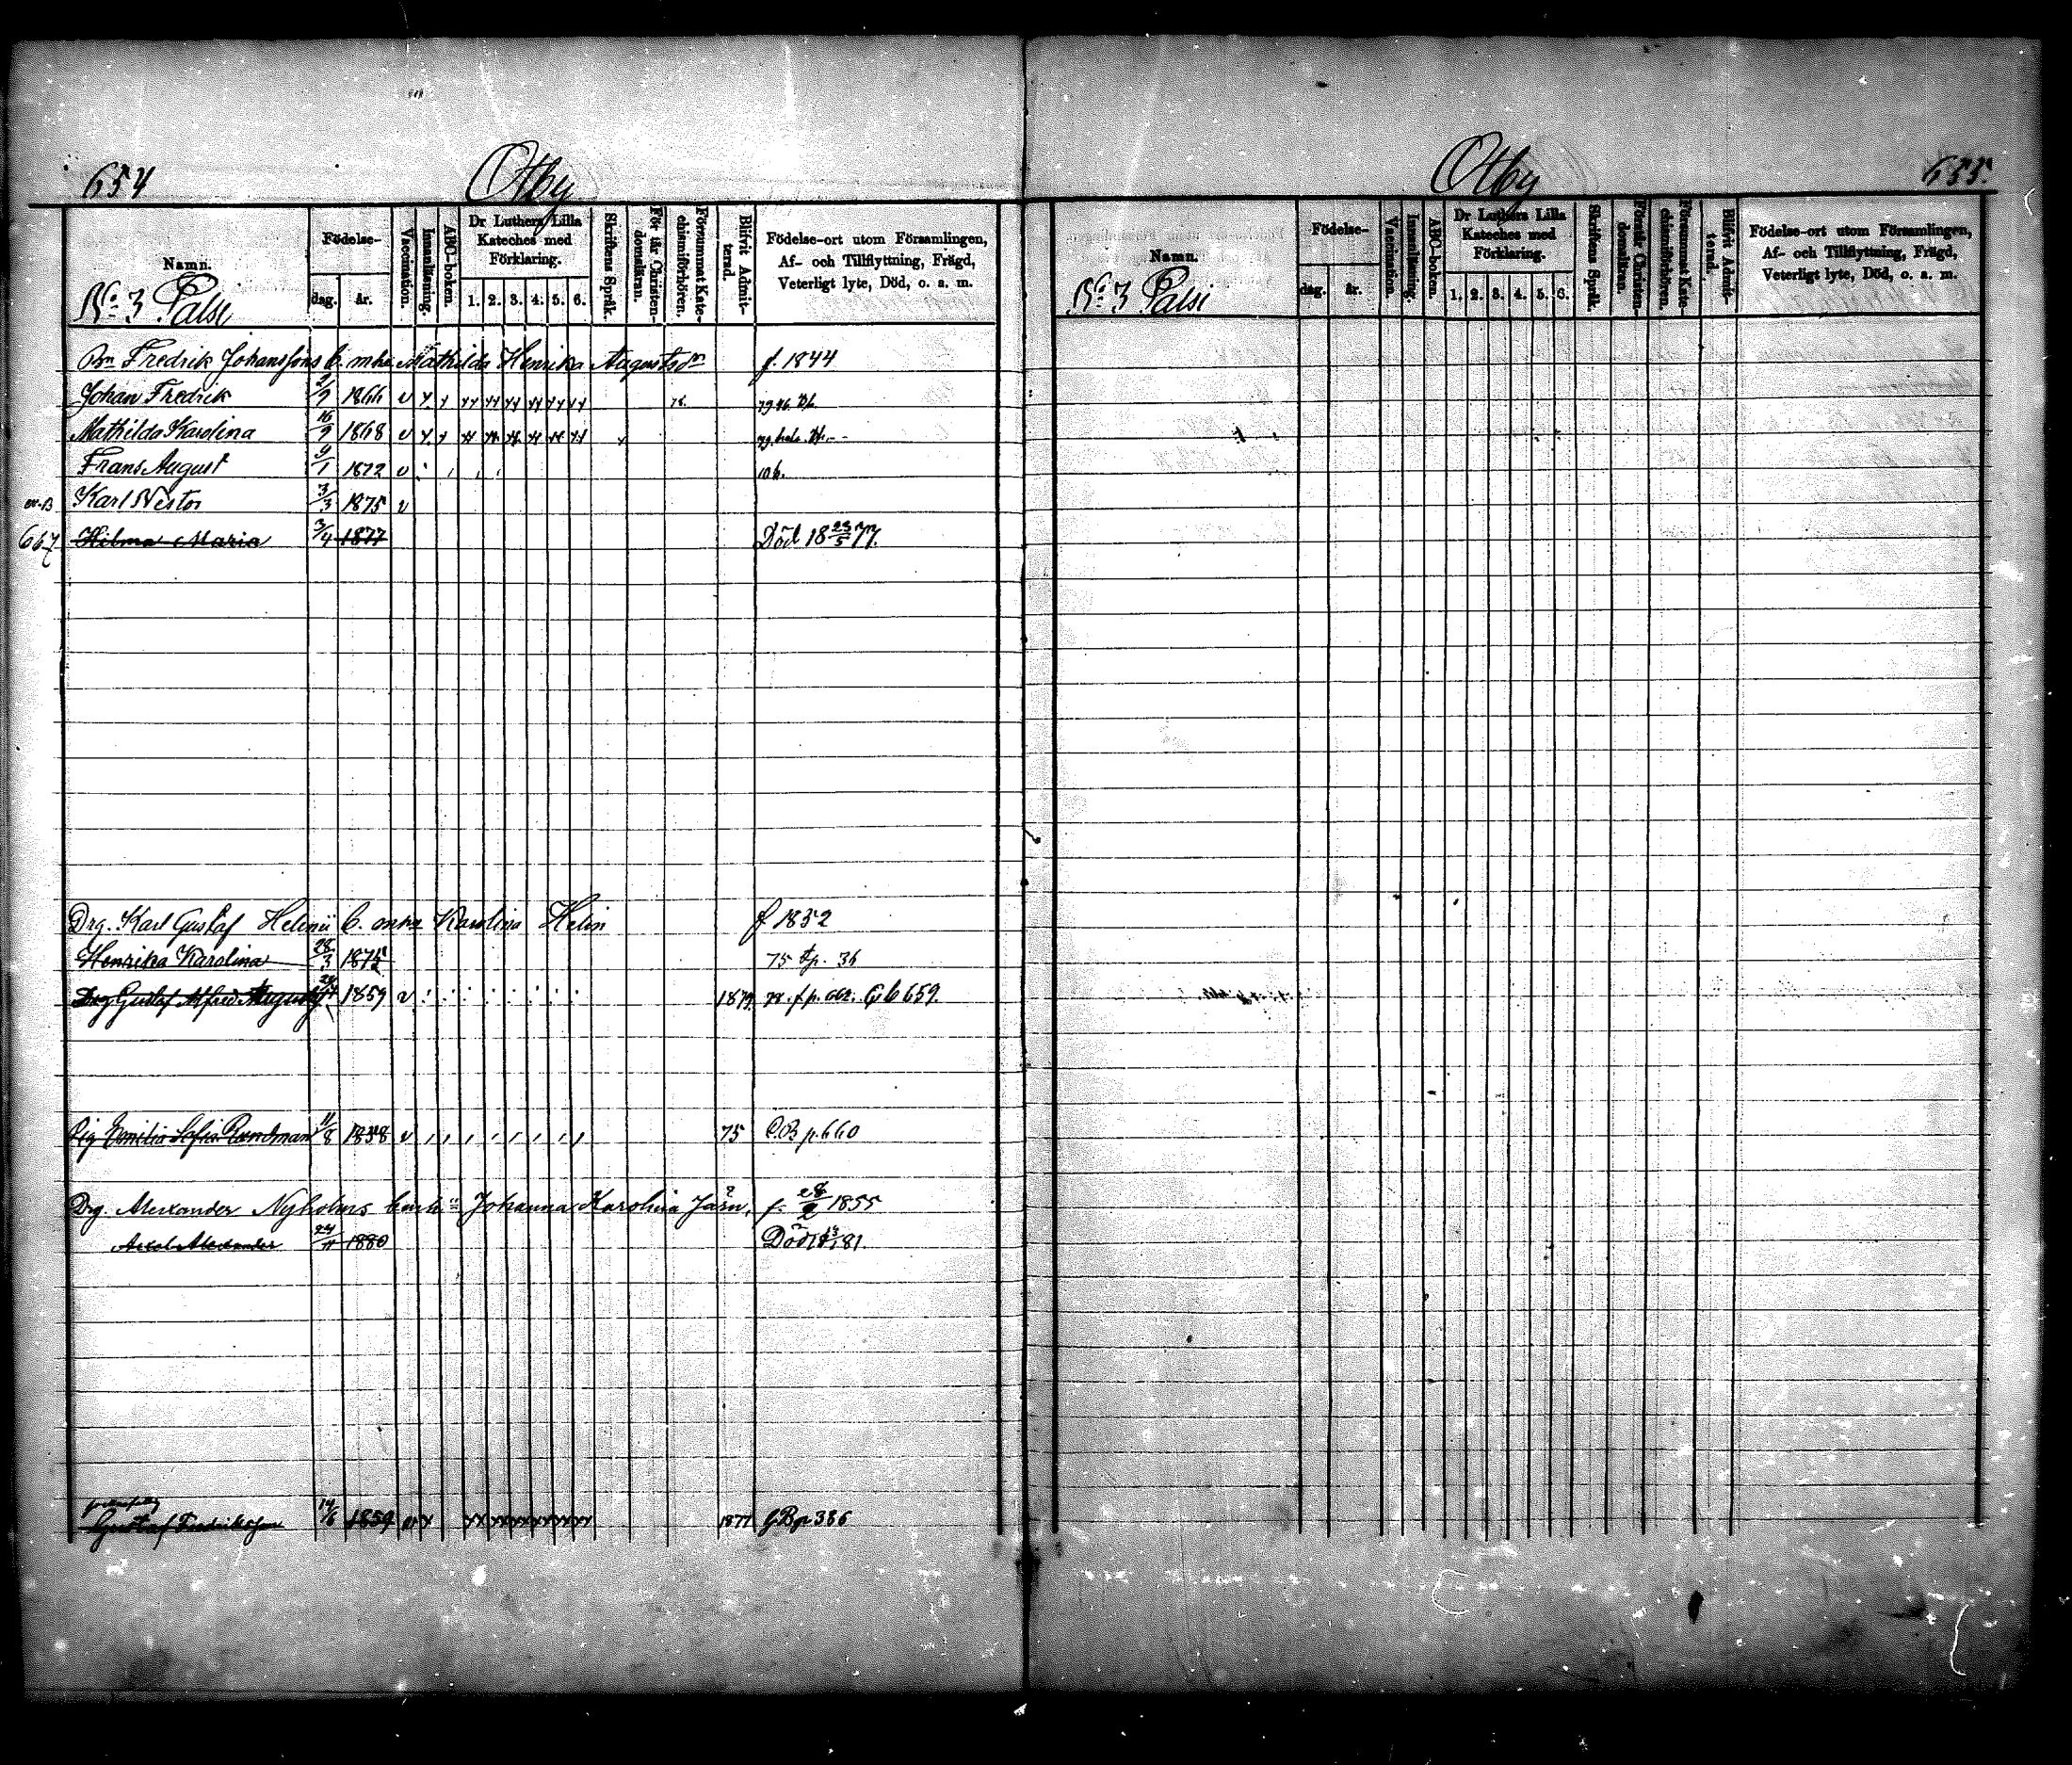 654
Otby
Namn.
Födelse-
dag.
år.
Vaccination.
Innanläsning.
ABC-boken.
Dr Luthers Lilla
Kateches med
Förklaring.
1. 2. 3. 4. 5. 6.
Skriftens Språk.
Förstår Christen-
domsläran.
Försummat Kate-
chismiförhören.
Blifvit Admit-
terad.
Födelse-ort utom Församlingen,
Af- och Tillflyttning, Frägd,
Veterligt lyte, Död, o. a. m.
No 3 Palsi
Bn Fredrik Johanssons b. m. h. Mathilda Henrika Augustsdr f. 1844
Johan Fredrik 2/9 1866 v
Mathilda Karolina 16/9 1868 v
Frans August 9/1 1872 v
Karl Nestor 3/3 1875 v
667 Hilma Maria 3/4 1877 Död 18 23/5 77.
Drg. Karl Gustaf Helins b. m. h. Karolina Helin f 1832
Henrika Karolina 28/3 1875 75 fp. 36
Drg Gustaf Alfred August 1859 v 1879. 659.
Pig Emilia Sofia Rundman 11/8 1858 v 75 p. 660
Drg. Alexander Nyholms Johanna Karolina Järn, f. 28/2 1855
Axel Alexander 24/11 1880 Död 81
Gustaf Fredriksson 14/6 1859 1877 GB p 386
Otby
655.
Namn.
Födelse-
dag.
år.
Vaccination.
Innanläsning.
ABC-boken.
Dr Luthers Lilla
Kateches med
Förklaring.
1. 2. 3. 4. 5. 6.
Skriftens Språk.
Förstår Christen-
domsläran.
Försummat Kate-
chismiförhören.
Blifvit Admit-
terad.
Födelse-ort utom Församlingen,
Af- och Tillflyttning, Frägd,
Veterligt lyte, Död, o. a. m.
No 3 Palsi